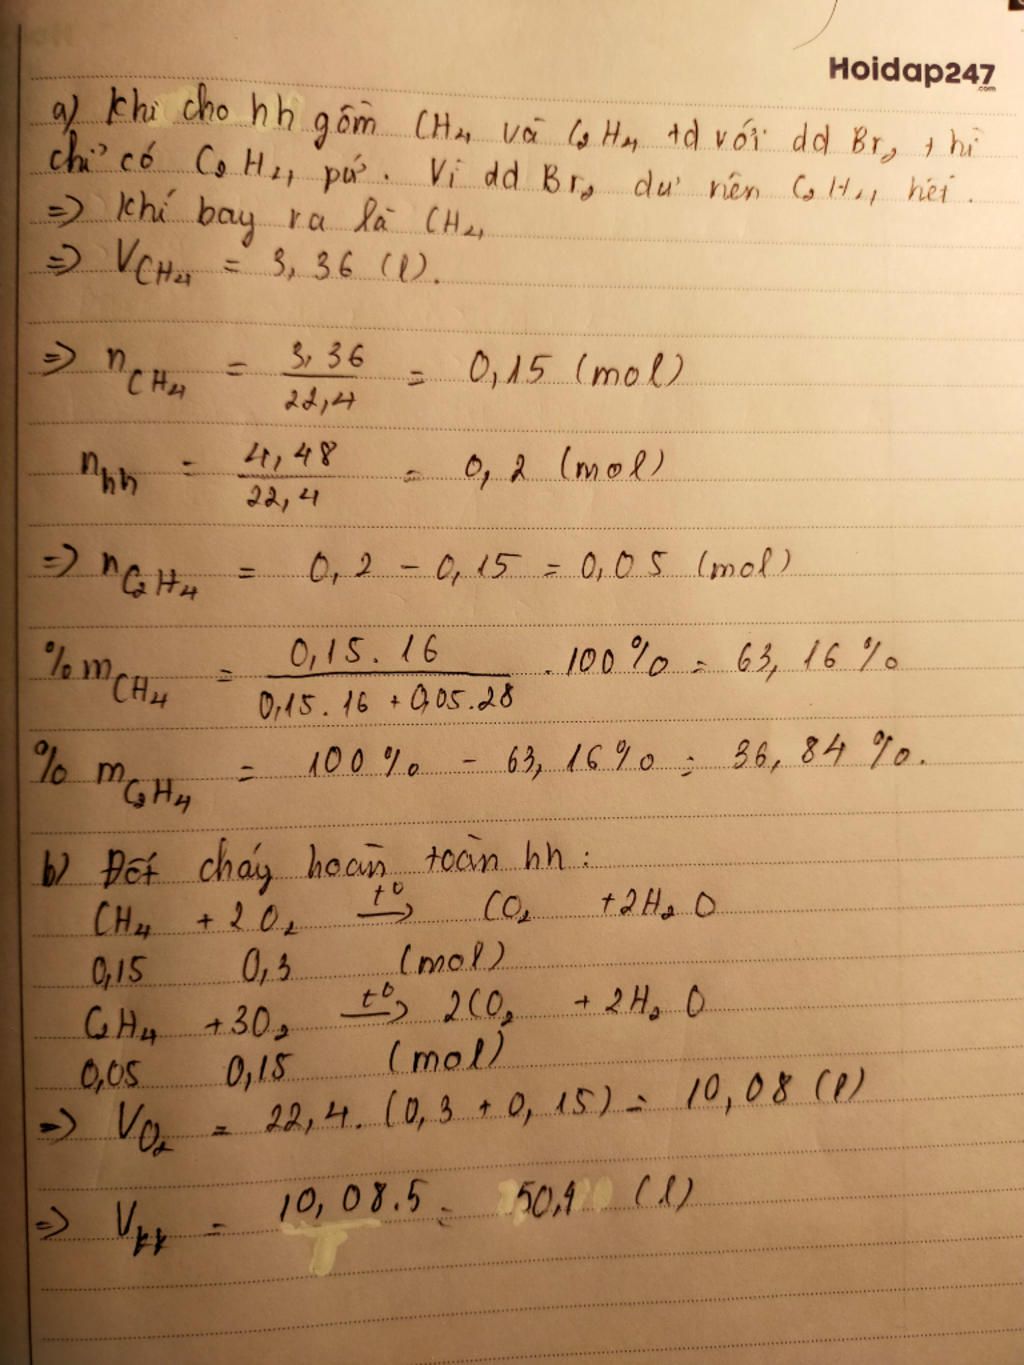 Hoidap247
.com
a) Khi cho hh gồm CH4 và C2H4 td với dd Br2 thì
chỉ có C2H4 pứ. Vì dd Br2 dư nên C2H4 hết.
=> Khí bay ra là CH4
=> VCH4 = 3,36 (l).
=> nCH4 = 3,36/22,4 = 0,15 (mol)
nhh = 4,48/22,4 = 0,2 (mol)
=> nC2H4 = 0,2 - 0,15 = 0,05 (mol)
%mCH4 = 0,15.16/0,15.16 + 0,05.28 .100% = 63,16%
% mC2H4 = 100% - 63,16% = 36,84%.
b) Đốt cháy hoàn toàn hh:
CH4 + 2O2 t°→ CO2 + 2H2O
0,15 0,3 (mol)
C2H4 + 3O2 t°→ 2CO2 + 2H2O
0,05 0,15 (mol)
=> VO2 = 22,4.(0,3 + 0,15) = 10,08 (l)
=> Vkk = 10,08.5 = 50,4 (l)